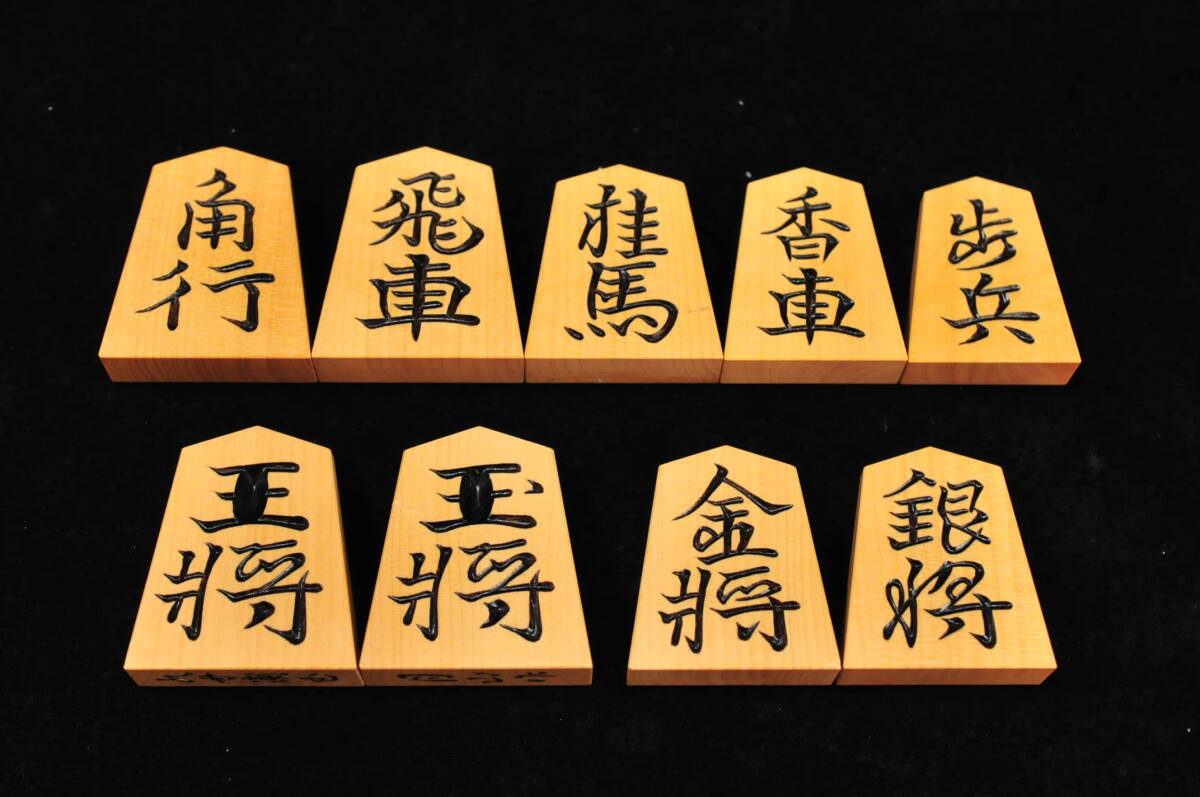 角行
飛車
桂馬
香車
歩兵
王將
玉將
金將
銀将